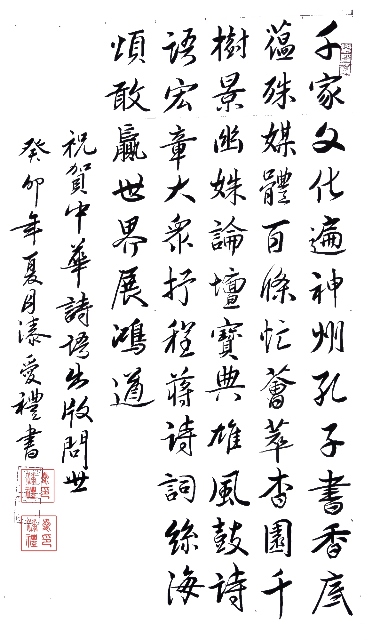 千家文化遍神州孔子書香底
蕴殊媒體百條忙薈萃杏園千
樹景幽姝論壇寶典雄風鼓詩
語宏章大衆抒程蒋詩詞絲海
頌敢贏世界展鴻道
祝賀中華詩語出版問世
癸卯年夏月漆愛禮書